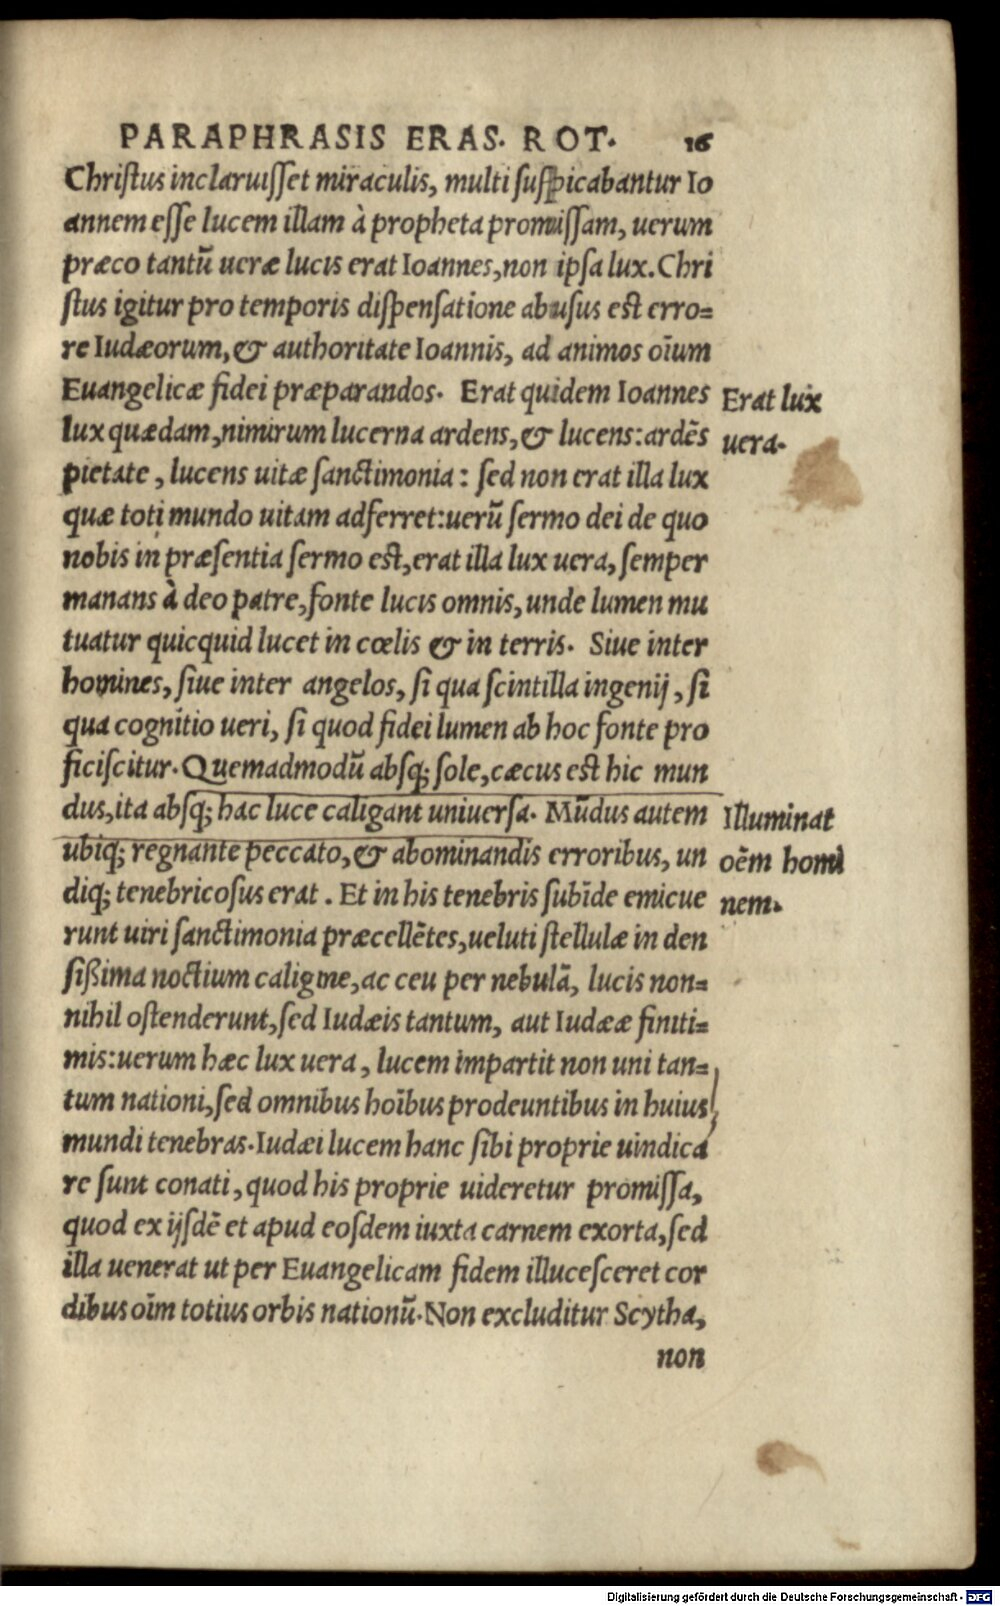 PARAPHRASIS ERAS. ROT. 16
Christus inclaruisset miraculis, multi suspicabantur Io
annem esse lucem illam à propheta promissam, uerum
præco tantũ ueræ lucis erat Ioannes, non ipsa lux. Chri
stus igitur pro temporis dispensatione abusus est erro=
re Iudæorum, & authoritate Ioannis, ad animos oĩum
Euangelicæ fidei præparandos. Erat quidem Ioannes
lux quædam, nimirum lucerna ardens, & lucens: ardẽs
pietate, lucens uitæ sanctimonia: sed non erat illa lux
quæ toti mundo uitam adferret: uerũ sermo dei de quo
nobis in præsentia sermo est, erat illa lux uera, semper
manans à deo patre, fonte lucis omnis, unde lumen mu
tuatur quicquid lucet in cœlis & in terris. Siue inter
homines, siue inter angelos, si qua scintilla ingenij, si
qua cognitio ueri, si quod fidei lumen ab hoc fonte pro
ficiscitur. Quemadmodũ absq; sole, cæcus est hic mun
dus, ita absq; hac luce caligant uniuersa. Mũdus autem
ubiq; regnante peccato, & abominandis erroribus, un
diq; tenebricosus erat. Et in his tenebris subĩde emicue
runt uiri sanctimonia præcellẽtes, ueluti stellulæ in den
sißima noctium caligine, ac ceu per nebulã, lucis non=
nihil ostenderunt, sed Iudæis tantum, aut Iudææ finiti=
mis: uerum hæc lux uera, lucem impartit non uni tan=
tum nationi, sed omnibus hoĩbus prodeuntibus in huius
mundi tenebras. Iudæi lucem hanc sibi proprie uindica
re sunt conati, quod his proprie uideretur promissa,
quod ex ijsdẽ et apud eosdem iuxta carnem exorta, sed
illa uenerat ut per Euangelicam fidem illucesceret cor
dibus oĩm totius orbis nationũ. Non excluditur Scytha,
non
Erat lux
uera.
Illuminat
oẽm homi
nem.
Digitalisierung gefördert durch die Deutsche Forschungsgemeinschaft - DFG